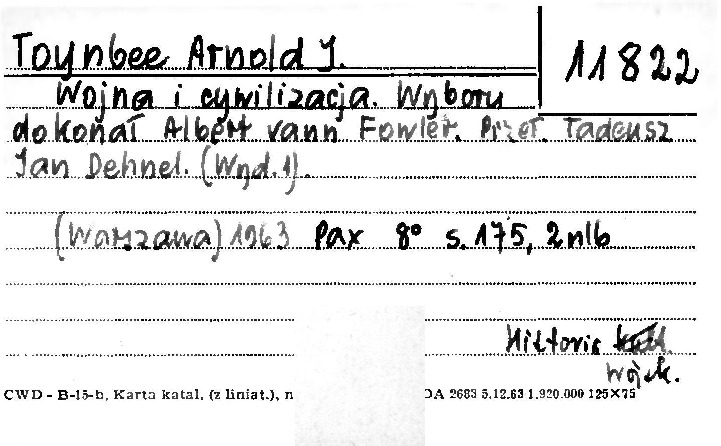 Toynbee Arnold J.
11822
Wojna i cywilizacja. Wyboru
dokonał Albert vann Fowler. Przeł. Tadeusz
Jan Dehnel. (Wyd. 1).
(Warszawa) 1963 Pax 8° s. 175, 2 nlb
Historia
wojsk.
CWD - B-15-b, Karta katal. (z liniat.), n
DA 2683 5.12.63 1.920.000 125×75